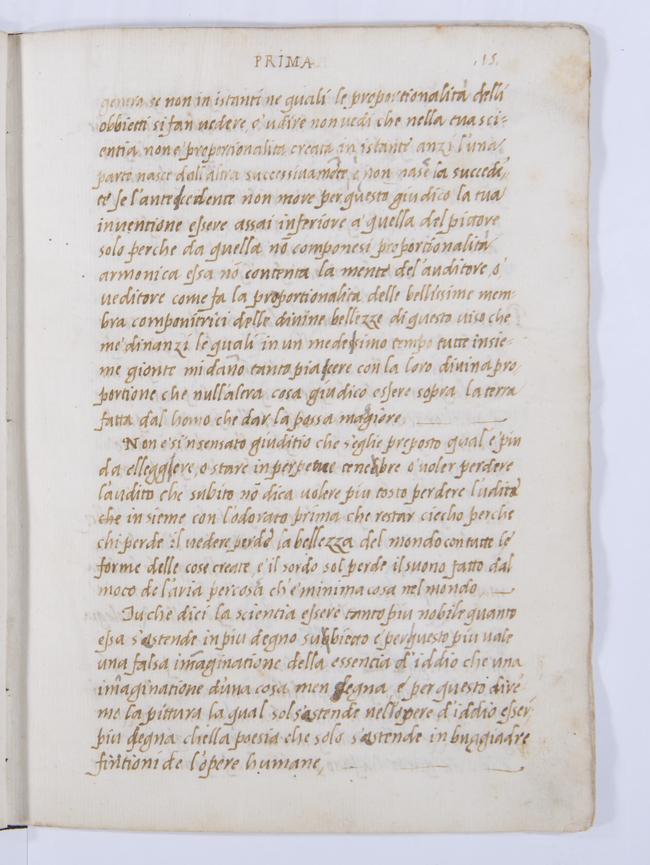 PRIMA .15.
genera se non in istanti ne quali le proportionalità delli
obbietti si fan vedere, o' udire non vedi che nella tua sci=
entia non e' proportionalita creata in istante anzi l'una
parte nasce dall'altra successivamēte, e' non nasce la succedē,
te se l'antecedente non more per questo giudico la tua
inventione essere assai inferiore a' quella del pittore
solo perche da quella nō componesi proportionalità
armonica essa nō contenta la mente del'auditore, o'
veditore come fa la proportionalita delle bellissime mem=
bra componitrici delle divine bellezze di questo viso che
m'è dinanzi le quali in un medesimo tempo tutte insie=
me gionte mi dāno tanto piacere con la loro divina pro
portione che null'altra cosa giudico essere sopra la terra
fatta dal homo che dar la possa magiore,
Non e' si insensato giuditio che s'eglie preposto qual e' piu
da elleggiere, o stare in perpetue tenebre o' voler perdere
l'audito che subito nō dica volere piu tosto perdere l'udito
che insieme con l'odorato prima che restar ciecho perche
chi perde il vedere perde la bellezza del mondo con tutte le
forme delle cose create, e' il sordo sol perde il suono fatto dal
moto de l'aria percosa ch'e minima cosa nel mondo
Tu che dici la scientia essere tanto piu nobile quanto
essa s'astende in piu degno subbietto e per questo piu vale
una falsa immaginatione della essencia d'iddio che una
immaginatione d'una cosa men degna e per questo dire
mo la pittura la qual sol s'astende nell'opere d'iddio esser
piu degna ch'ella poesia che solo s'astende in buggiadre
fintioni de l'opere humane,